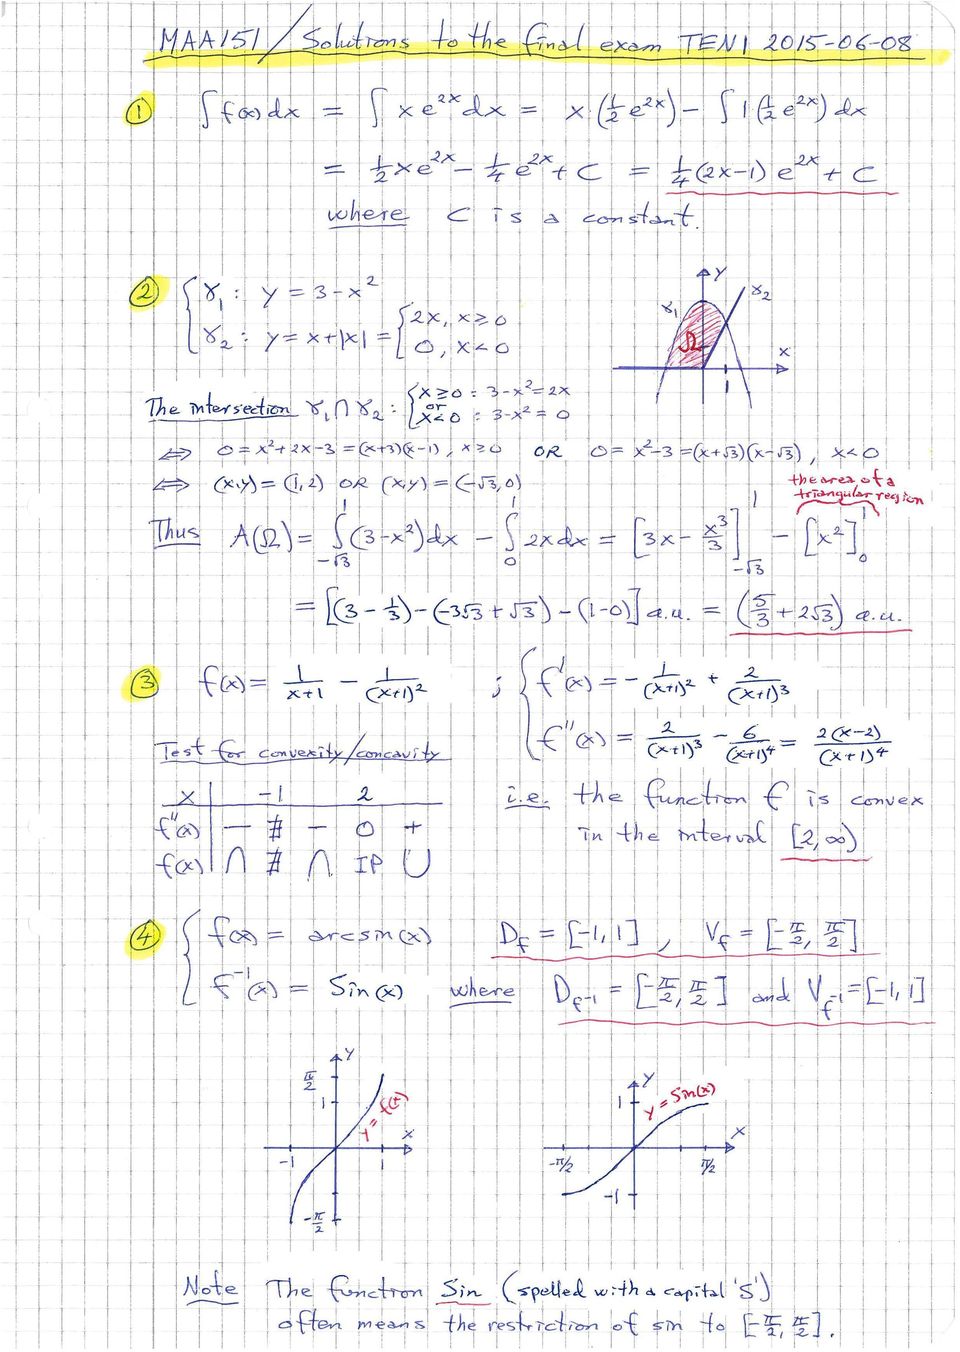 MAA151 / Solutions to the final exam TEN1 2015-06-08
① ∫ f(x) dx = ∫ x e^{2x} dx = x·(½ e^{2x}) − ∫ 1·(½ e^{2x}) dx
= ½ x e^{2x} − ¼ e^{2x} + C = ¼ (2x−1) e^{2x} + C
where C is a constant.
② { γ₁ : y = 3−x²
γ₂ : y = x+|x| = { 2x, x≥0
0, x<0
y
γ₁ γ₂
Ω
x
1
The intersection γ₁∩γ₂ : { x≥0 : 3−x² = 2x
or
x<0 : 3−x² = 0
⟺ 0 = x²+2x−3 = (x+3)(x−1), x≥0 OR 0 = x²−3 = (x+√3)(x−√3), x<0
⟺ (x,y) = (1,2) OR (x,y) = (−√3,0)
the area of a
triangular region
Thus A(Ω) = ∫_{−√3}^{1} (3−x²) dx − ∫_0^1 2x dx = [3x − x³/3]_{−√3}^{1} − [x²]_0^1
= [(3 − 1/3) − (−3√3 + √3) − (1−0)] a.u. = (5/3 + 2√3) a.u.
③ f(x) = 1/(x+1) − 1/(x+1)² ; { f'(x) = − 1/(x+1)² + 2/(x+1)³
f''(x) = 2/(x+1)³ − 6/(x+1)⁴ = 2(x−2)/(x+1)⁴
Test for convexity/concavity
x | −1 2
f''(x) | − ∄ − 0 +
f(x) | ∩ ∄ ∩ IP ∪
i.e. the function f is convex
in the interval [2,∞)
④ { f(x) = arcsin(x) D_f = [−1,1] , V_f = [−π/2, π/2]
f⁻¹(x) = Sin(x) where D_{f⁻¹} = [−π/2, π/2] and V_{f⁻¹} = [−1,1]
y
π/2
1
y = f(x)
x
−1 1
−π/2
y
1
y = Sin(x)
x
−π/2 π/2
−1
Note The function Sin (spelled with a capital 'S')
often means the restriction of sin to [−π/2, π/2].